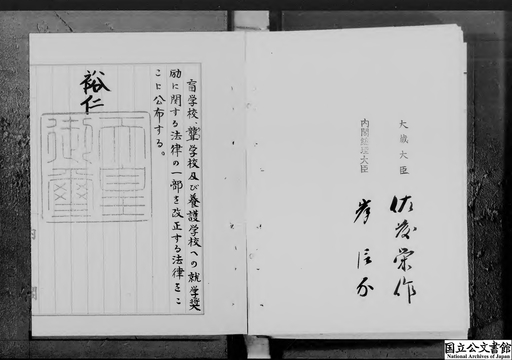 盲学校、聾学校及び養護学校への就学奨
励に関する法律の一部を改正する法律をこ
こに公布する。
裕仁
天皇
御璽
大蔵大臣
佐藤栄作
内閣総理大臣
岸信介
国立公文書館
National Archives of Japan